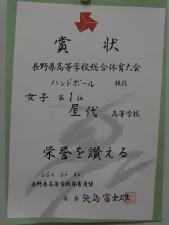 賞状
長野県高等学校総合体育大会
ハンドボール 競技
女子 第1位
屋代 高等学校
栄誉を讃える
長野県高等学校体育連盟
会長 矢島富士雄